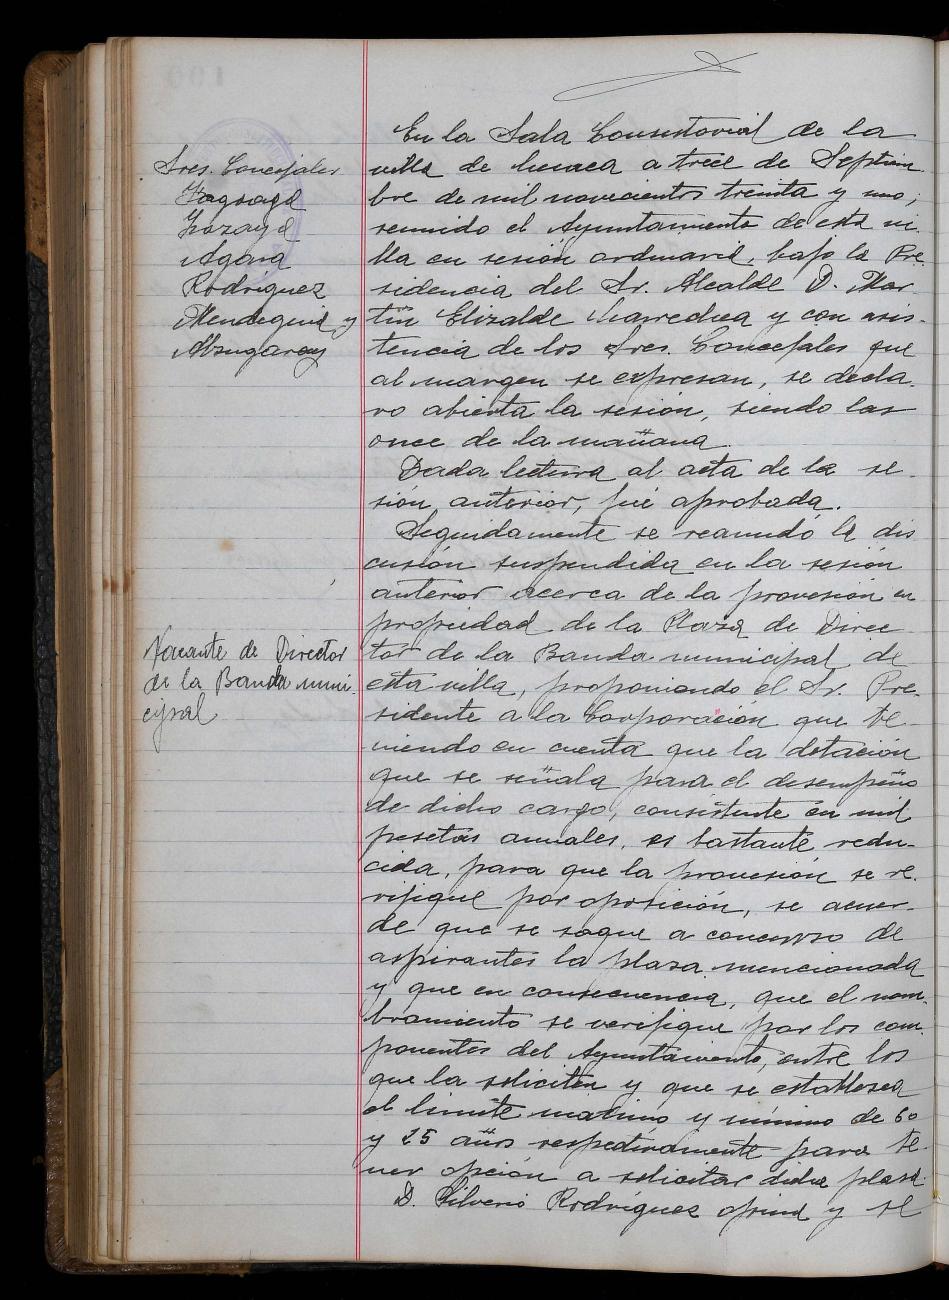 Sres. Concejales
Gozaya
Agara
Rodriguez
Mendeguia y
Abugaray
Vacante de Director
de la Banda muni-
cipal
En la Sala Consistorial de la
villa de a trece de Septiem
bre de mil novecientos treinta y uno;
reunido el Ayuntamiento de esta vi
lla en sesión ordinaria, bajo la Pre-
sidencia del Sr. Alcalde D. Mar
tin Elizalde y con asis-
tencia de los Sres. Concejales que
al margen se expresan, se decla-
ro abierta la sesión, siendo las
once de la mañana.
Dada lectura al acta de la se-
sión anterior, fué aprobada.
Seguidamente se reanudó la dis
cusión suspendida en la sesión
anterior acerca de la provesión en
propiedad de la Plaza de Direc-
tor de la Banda municipal de
esta villa, proponiendo el Sr. Pre-
sidente a la Corporación que te-
niendo en cuenta que la dotación
que se señala para el desempeño
de dicho cargo, consistente en mil
pesetas anuales, es bastante redu-
cida, para que la provesión se ve-
rifique por oposición, se acuer-
de que se saque a concurso de
aspirantes la plaza mencionada
y que en consecuencia, que el nom-
bramiento se verifique por los com-
ponentes del Ayuntamiento, entre los
que la soliciten y que se establezca
el limite maximo y mínimo de 60
y 25 años respectivamente para te-
ner opción a solicitar dicha plaza.
D. Silverio Rodríguez opina y se